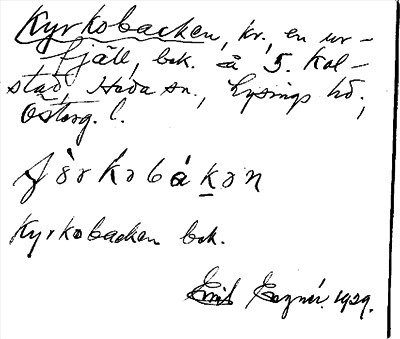 Kyrkobacken, kr., en ur-
fjäll, bek. å S. Kal-
stad, Hada sn., Lysings hd,
Österg. l.
Kyrkobacken bek.
Emil Eegnér. 1929.